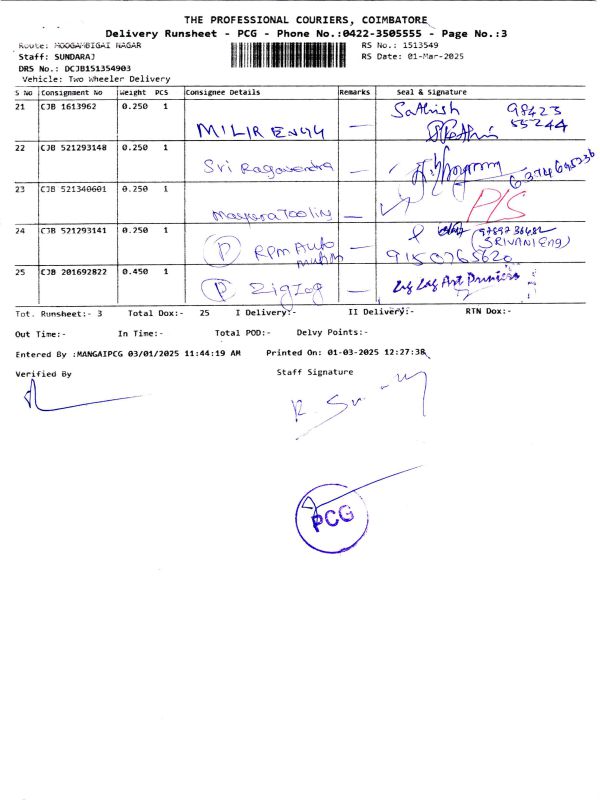 THE PROFESSIONAL COURIERS, COIMBATORE
Delivery Runsheet - PCG - Phone No.:0422-3505555 - Page No.:3
Route: MOOGAMBIGAI NAGAR
RS No.: 1513549
Staff: SUNDARAJ
RS Date: 01-Mar-2025
DRS No.: DCJB151354903
Vehicle: Two Wheeler Delivery
S No Consignment No Weight PCS Consignee Details Remarks Seal & Signature
21 CJB 1613962 0.250 1 Sathish 98423
55244
MILIR ENGG —
22 CJB 521293148 0.250 1
Sri Ragavendra — 6374695236
23 CJB 521340601 0.250 1 P/S
Tooling —
24 CJB 521293141 0.250 1
P RPM Auto — (SRIVANI Eng)
9150765620
25 CJB 201692822 0.450 1 Zig Zag Art Printers
P ZigZag —
Tot. Runsheet:- 3 Total Dox:- 25 I Delivery:- II Delivery:- RTN Dox:-
Out Time:- In Time:- Total POD:- Delvy Points:-
Entered By :MANGAIPCG 03/01/2025 11:44:19 AM Printed On: 01-03-2025 12:27:38
Verified By Staff Signature
PCG